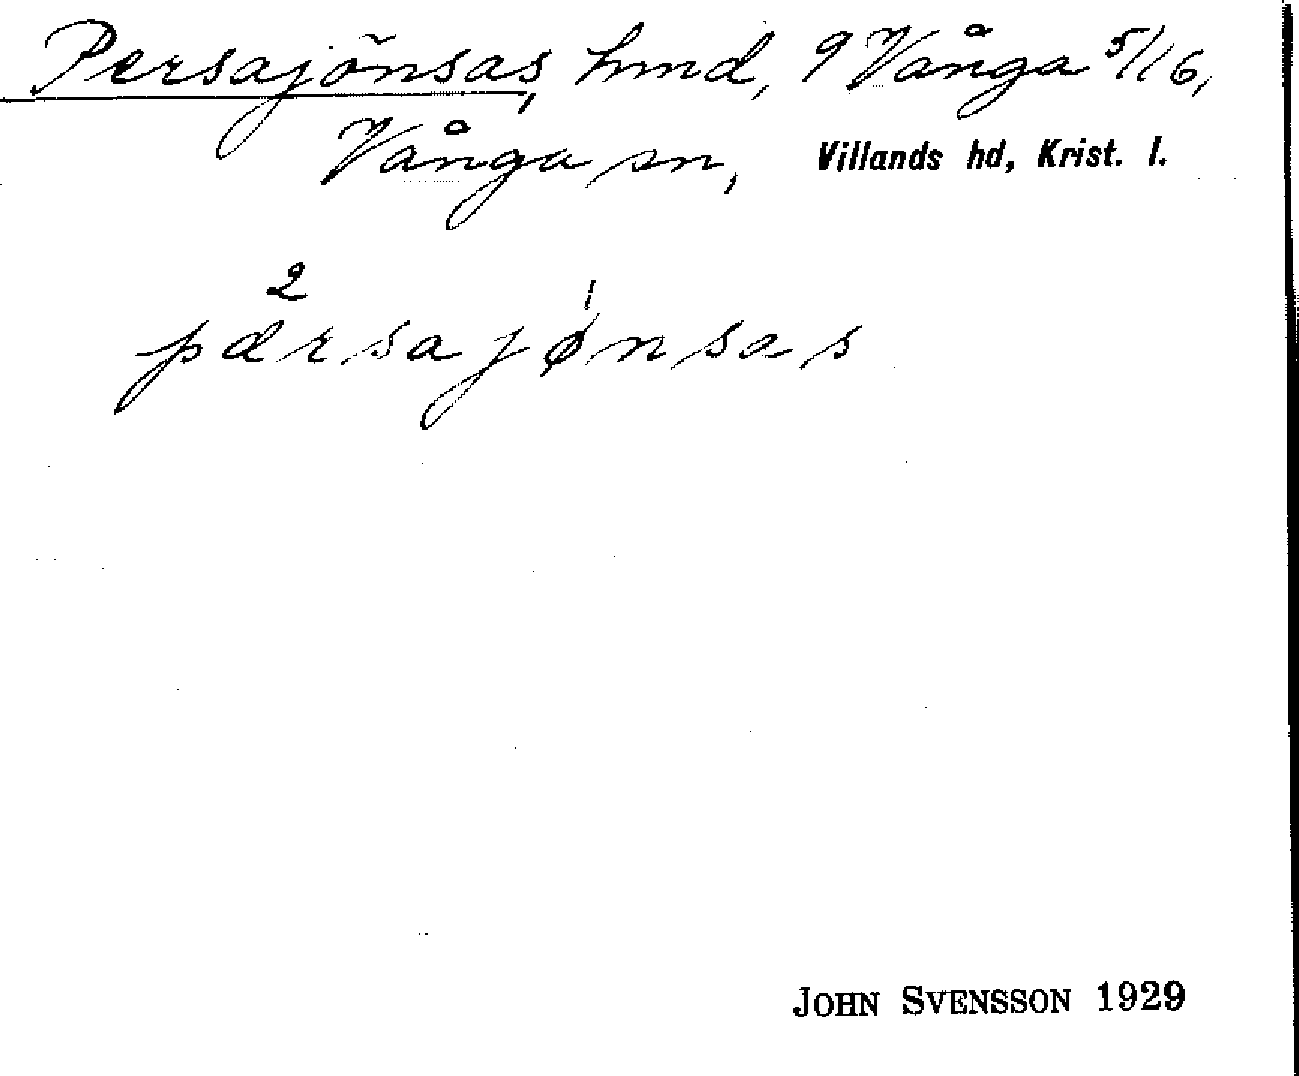 Persajönsas, hmd, 9 Vånga 5/16,
Vånga sn, Villands hd, Krist. l.
2 1
pærsajønsas
JOHN SVENSSON 1929